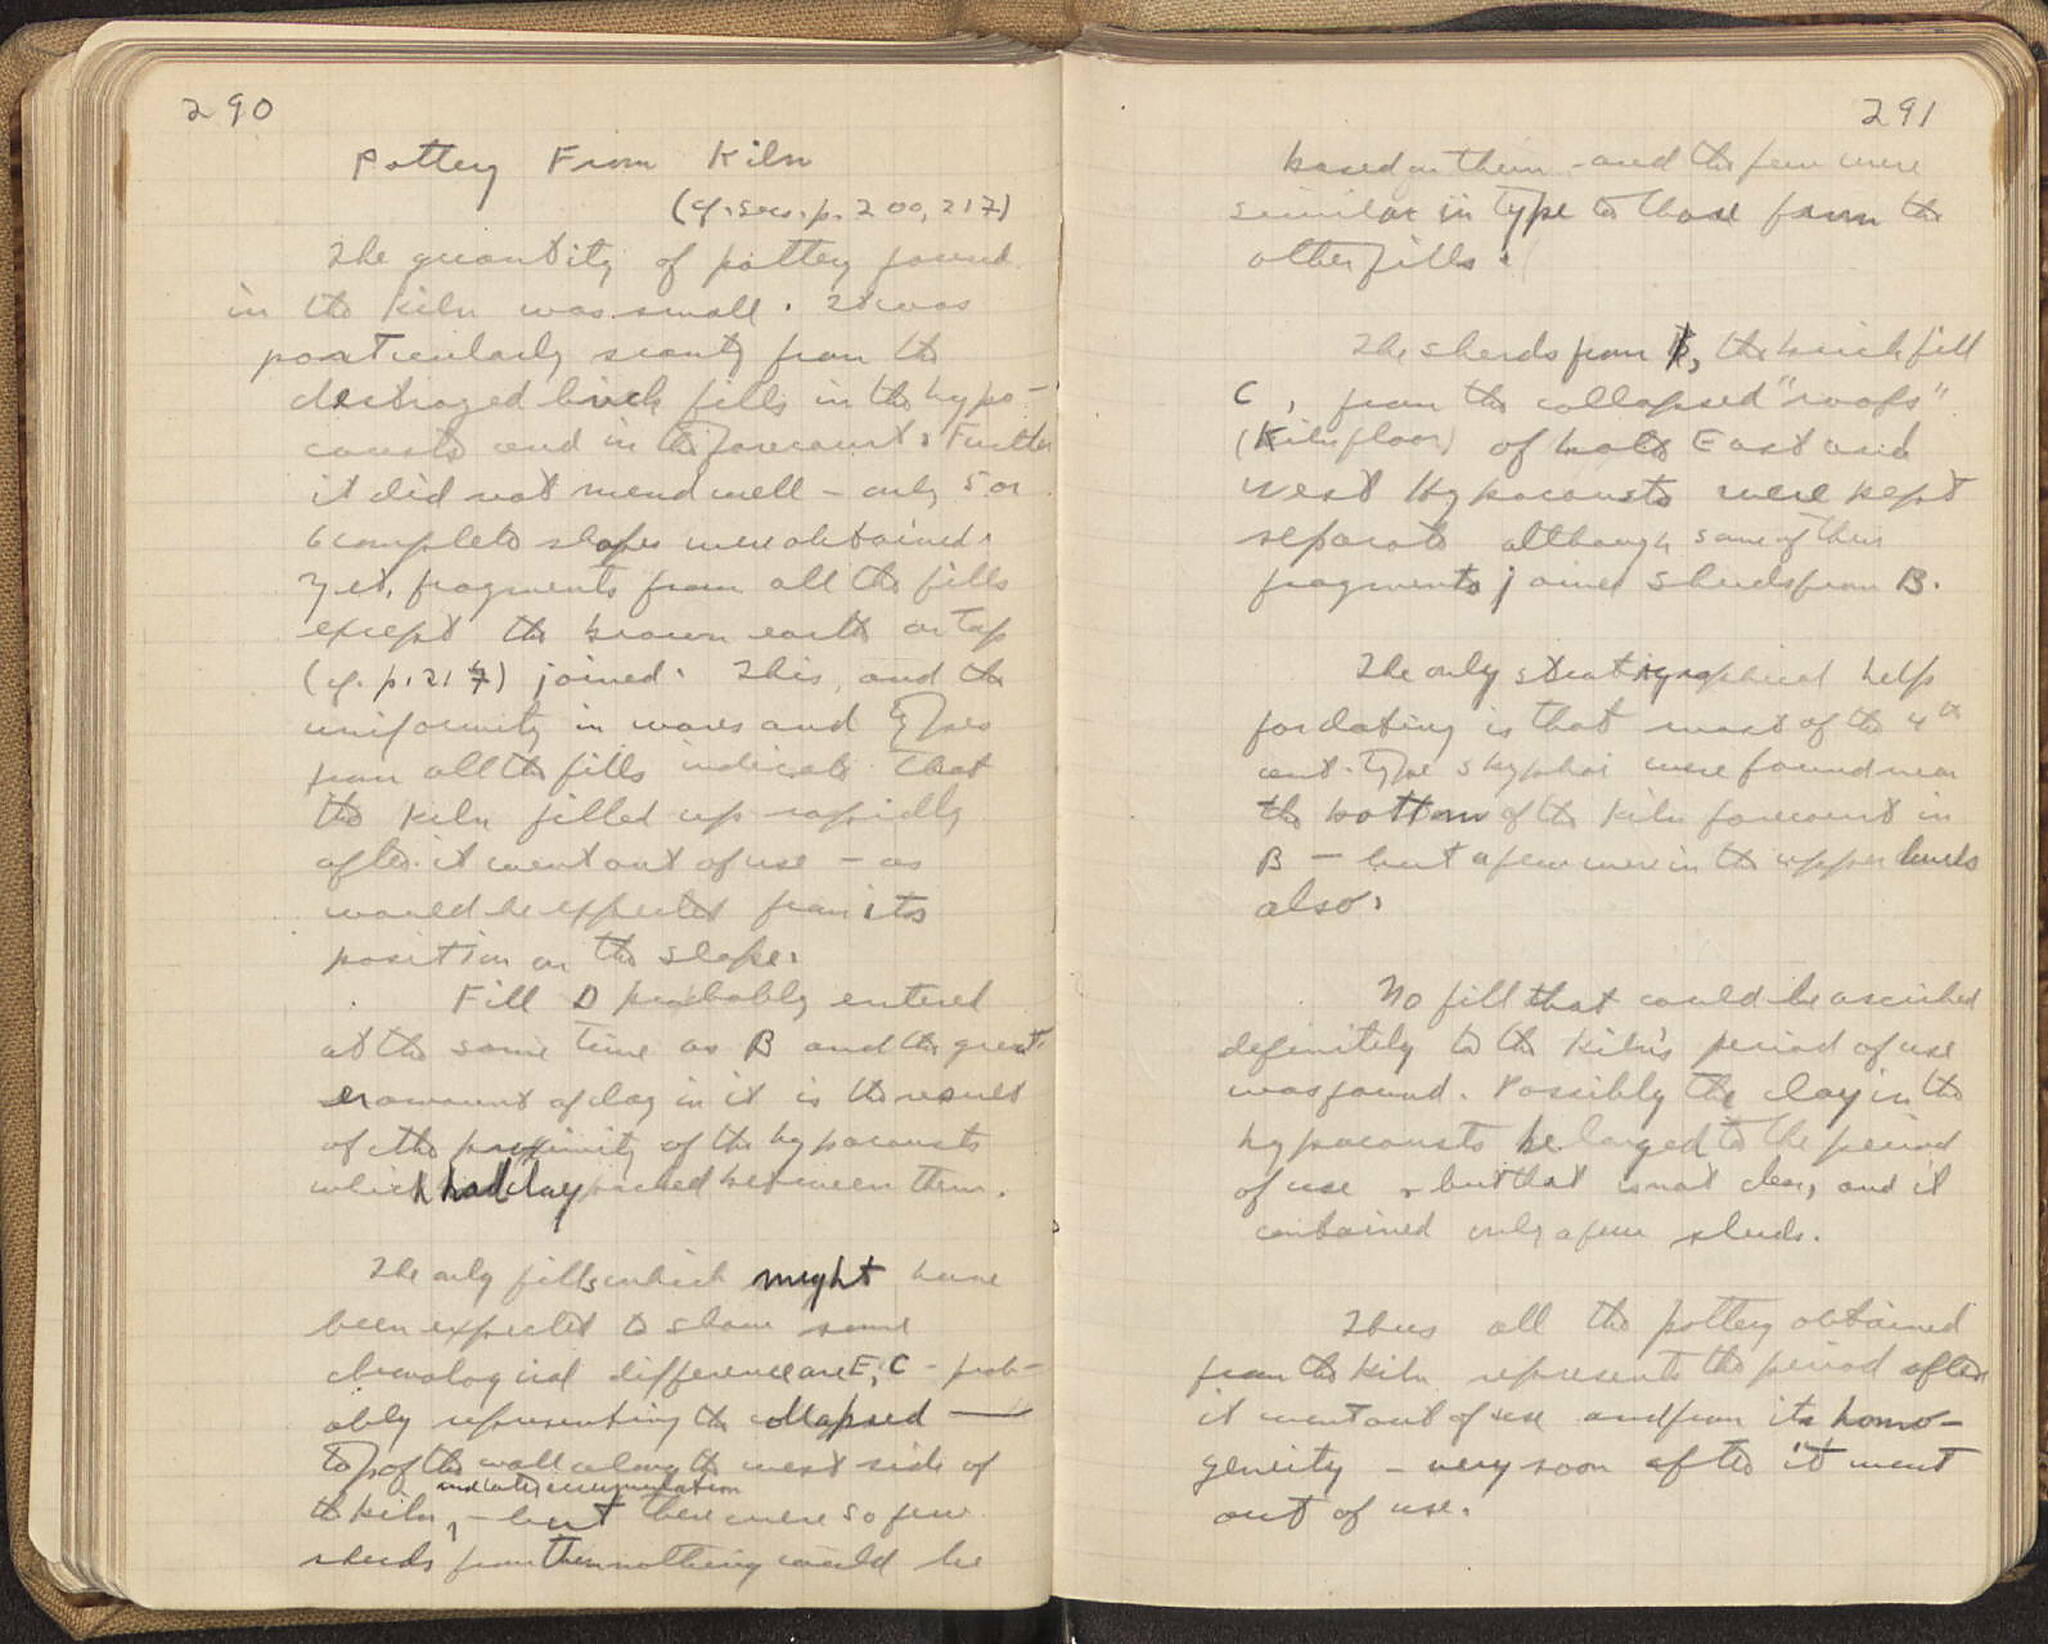 290
Pottery From Kiln
(cf. secs. p. 200, 217)
The quantity of pottery found
in the kiln was small. It was
particularly scanty from the
destroyed brick fills in the hypo-
causts and in the forecourt. Further
it did not mend well - only 5 or
6 complete shapes were obtained.
Yet, fragments from all the fills
except the brown earth on top
(cf. p. 217) joined. This, and the
uniformity in wares and types
from all the fills indicate that
the kiln filled up rapidly
after it went out of use - as
would be expected from its
position on the slope.
Fill D probably entered
at the same time as B and the great-
er amount of clay in it is the result
of the proximity of the hypocausts
which had clay packed between them.
The only fills which might have
been expected to show some
chronological difference are E, C - prob-
ably representing the collapsed —
top of the wall along the west side of
and later accumulation
the kiln, - but there were so few
sherds from them nothing could be
291
based on them - and the few were
similar in type to those from the
other fills.
The sherds from B, the brick fill
C, from the collapsed "roofs"
(Kiln floor) of both East and
West Hypocausts were kept
separate although some of their
fragments joined sherds from B.
The only stratigraphical help
for dating is that most of the 4th
cent. type skyphoi were found near
the bottom of the kiln forecourt in
B - but a few were in the upper levels
also.
No fill that could be ascribed
definitely to the kiln's period of use
was found. Possibly the clay in the
hypocausts belonged to the period
of use - but that is not clear, and it
contained only a few sherds.
Thus all the pottery obtained
from the kiln represents the period after
it went out of use and from its homo-
geneity - very soon after it went
out of use.